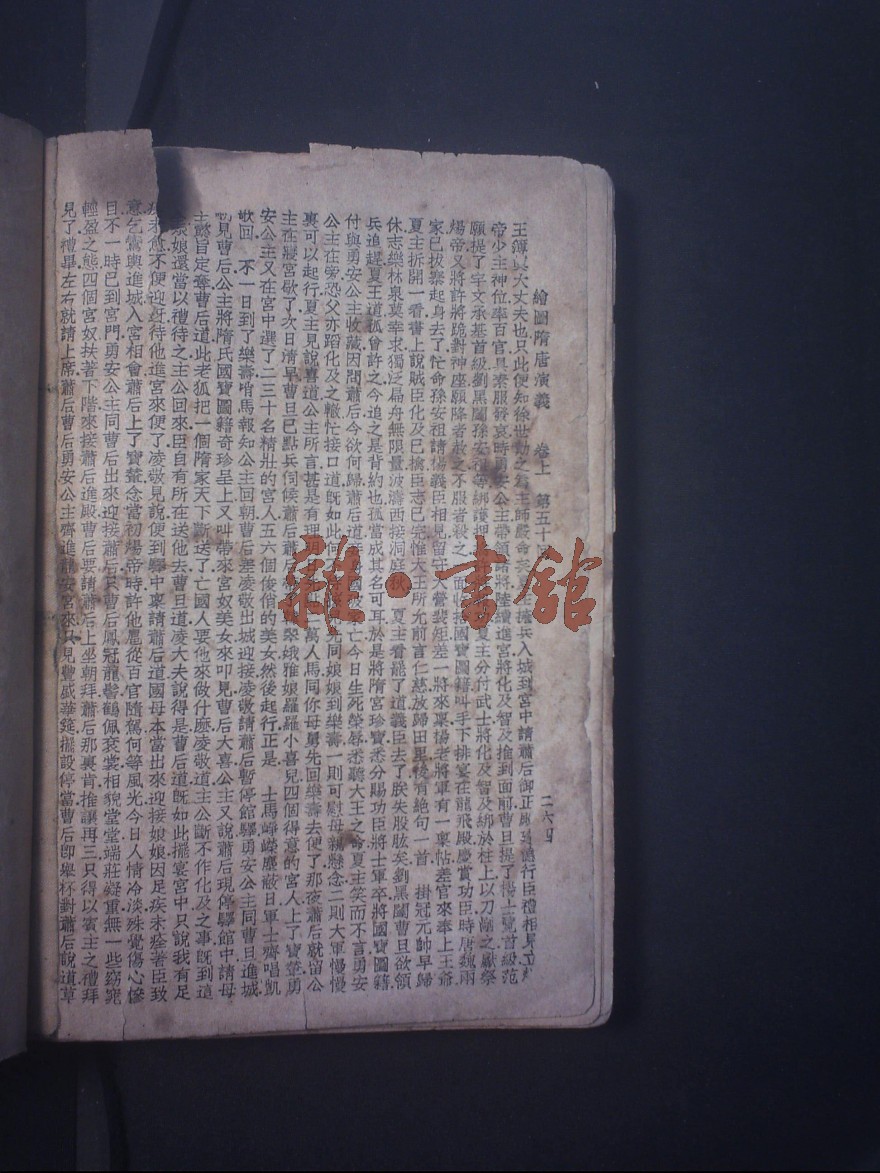 繪圖隋唐演義 卷上 第五十 二六四
王薄真大丈夫也只此便知徐世勣之 王師嚴命矣 擁兵入城到宮中請蕭后御正殿 行臣禮相見立
帝少主神位率百官具素服發哀時勇安公主帶領 將 續進宮將化及智及推到面前曹旦提了楊士覽首級范
願提了宇文承基首級劉黑闥孫安祖等綁護 許 夏主分付武士將化及智及綁於柱上以刀剮之獻祭
煬帝又將許將跪對神座願降者赦之不服者殺之 面收拾國寶圖籍叫手下排宴在龍飛殿慶賞功臣時唐魏兩
家已拔寨起身去了忙命孫安祖請楊義臣相見留守大營裴矩差一將來稟楊老將軍有一稟帖差官來奉上王爺
夏主拆開一看書上說賊臣化及已擒臣志已完惟大王所允前言仁慈放歸田里後有絕句一首 掛冠元帥早歸
休志樂林泉莫幸求獨泛扁舟無限量波濤西接洞庭秋 夏主看罷了道義臣去了朕失股肱矣劉黑闥曹旦欲領
兵追趕夏王道孤曾許之今追之是背約也孤當成其名可耳於是將隋宮珍寶悉分賜功臣將士軍卒將國寶圖籍
付與勇安公主收藏因問蕭后今欲何歸蕭后道妾 國破 亡今日生死榮辱悉聽大王之命夏主笑而不言勇安
公主在旁恐父亦蹈化及之轍忙接口道既如此何 先同娘娘到樂壽一則可慰母親懸念二則大軍慢慢
裏可以起行夏主見說喜道公主所言甚是有理明 萬人馬同你母舅先回樂壽去便了那夜蕭后就留公
主在寢宮歇了次日清早曹旦已點兵伺候蕭后蕭 翠娥雅娘羅羅小喜兒四個得意的宮人上了寶輦勇
安公主又在宮中選了二三十名精壯的宮人五六個俊俏的美女然後起行正是 士馬崢嶸塵蔽日軍士齊唱凱
歌回 不一日到了樂壽哨馬報知公主回朝曹后差凌敬出城迎接凌敬請蕭后暫停館驛勇安公主同曹旦進城
朝見曹后公主將隋氏國寶圖籍奇珍呈上又叫帶來宮奴美女來叩見曹后大喜公主又說蕭后現停驛館中請母
主懿旨定奪曹后道此老狐把一個隋家天下斷送了亡國人要他來做什麼凌敬道主公斷不作化及之事既到這
娘娘還當以禮待之主公回來臣自有所在送他去曹旦道凌大夫說得是曹后道既如此擺宴宮中只說我有足
疾未愈不便迎迓待他進宮來便了凌敬見說便到驛中稟請蕭后道國母本當出來迎接娘娘因足疾未痊著臣致
意乞鸞輿進城入宮相會蕭后上了寶輦念當初煬帝時許他應從百官隨駕何等風光今日人情冷淡殊覺傷心慘
目不一時已到宮門勇安公主同曹后出來迎接蕭后只見曹后鳳冠龍髻鶴佩袞裳相貌堂堂端莊凝重無一些窈窕
輕盈之態四個宮奴扶著下階來接蕭后進殿曹后要請蕭后上坐朝拜蕭后那裏肯推讓再三只得以賓主之禮拜
見了禮畢左右就請上席蕭后曹后勇安公主齊進龍安宮來只見豐盛華筵擺設停當曹后卽舉杯對蕭后說道草
雜·書館